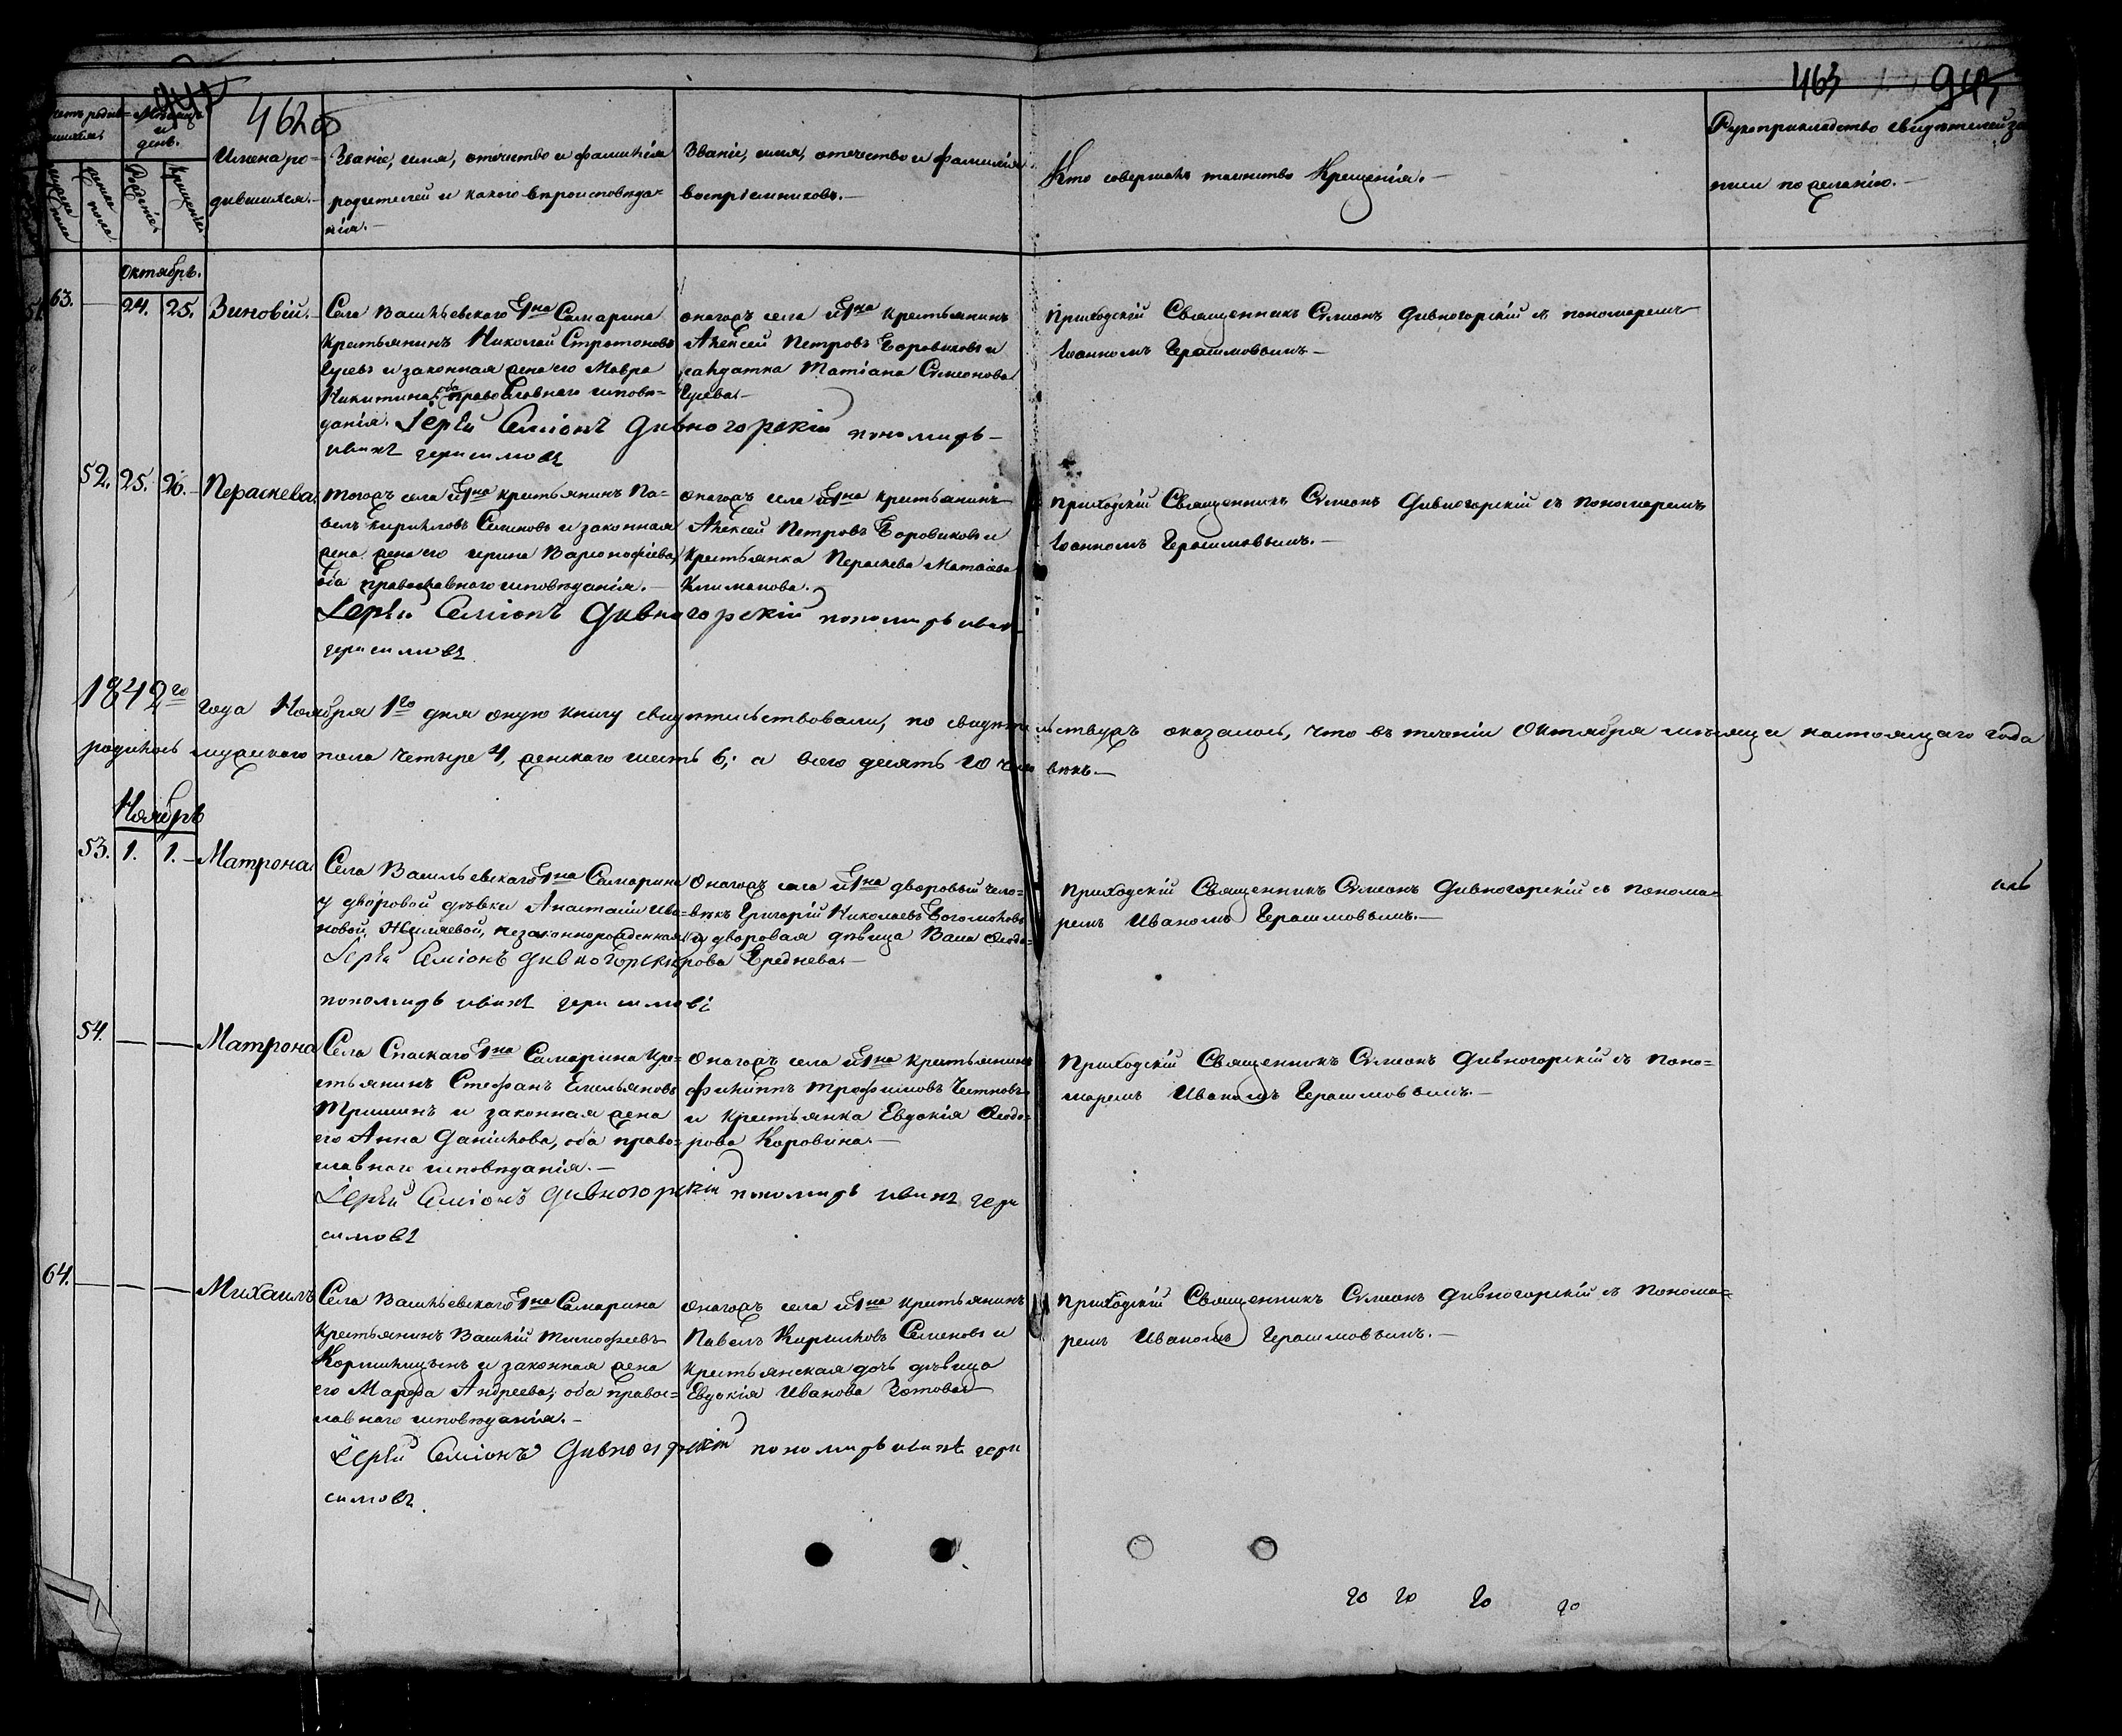 462об
463
Счетъ родив-
шихся.
Мѣсяцъ
и
день.
мужеска пола
женска пола.
Рожденіе.
Крещеніе.
Имена ро-
дившихся.—
Званіе, имя, отечество и фамилія
родителей и какого вѣроисповѣда-
нія.—
Званіе, имя, отечество и фамилія
воспріемниковъ.—
Кто совершалъ таинство Крещенія.—
Рукоприкладство свидѣтелей за-
писи по желанію.—
Октябрь.
63. — 24. 25. Зиновій.
Села Васильевскаго Г-на Самарина
крестьянинъ Николай Стратоновъ
Гусевъ и законная жена его Мавра
Никитина, оба православнаго исповѣ-
данія.
Іерей Симіонъ Дивногорскій пономарь
иванъ герасимовъ
Оногожъ села и Г-на крестьянинъ
Алексей Петровъ Боровиковъ и
солдатка Татіана Симеонова
Гусева.—
Приходскій Священникъ Симеонъ Дивногорскій съ пономаремъ
Іоанномъ Герасимовымъ.—
52. 25. 26. Параскева.
Тогожъ села и Г-на крестьянинъ Па-
велъ Кириловъ Семеновъ и законная
жена жена его Ирина Варфоломѣева,
оба православнаго исповѣданія.—
Іерей Симіонъ Дивногорскій пономарь иванъ
герасимовъ
Оногожъ села и Г-на крестьянинъ
Алексей Петровъ Боровиковъ и
крестьянка Параскева Матвіева
Климанова.—
Приходскій Священникъ Симеонъ Дивногорскій съ пономаремъ
Іоанномъ Герасимовымъ.—
1842го года Ноября 1го дня оную книгу свидѣтельствовали, по свидѣтельствужъ оказалось, что въ теченіи Октября мѣсяца настоящаго года
родилось мужескаго пола четыре 4, женскаго шесть 6; а всего десять 10 человѣкъ.—
Ноябрь
53. 1. 1. — Матрона.
Села Васильевскаго Г-на Самарина
у дворовой дѣвки Анастасіи Ива-
новой, незаконнорожденная.
Іерей Симіонъ дивногорскій
пономарь иванъ герасимовъ
Оногожъ села и Г-на дворовый чело-
вѣкъ Григорій Николаевъ Богомоловъ
и дворовая дѣвица Васса Ѳеодо-
рова Среднева.—
Приходскій Священникъ Симеонъ Дивногорскій съ понома-
ремъ Иваномъ Герасимовымъ.—
54. — — Матрона
Села Спаскаго Г-на Самарина кре-
стьянинъ Стефанъ Емельяновъ
Тришинъ и законная жена
его Анна Данилова, оба право-
славнаго исповѣданія.—
Іерей Симіонъ Дивногорскій пономарь иванъ гера
симовъ
Оногожъ села и Г-на крестьянинъ
Филиппъ Трофимовъ Честновъ
и крестьянка Евдокія Ѳеодо-
рова Коровина.—
Приходскій Священникъ Симеонъ Дивногорскій съ поно-
маремъ Иваномъ Герасимовымъ.—
64. — — — Михаилъ
Села Васильевскаго Г-на Самарина
крестьянинъ Василій Тимофеевъ
Кормилицынъ и законная жена
его Марфа Андреева; оба правос-
лавнаго исповѣданія.—
Іерей Симіонъ Дивногорскій пономарь иванъ гера
симовъ.
Оногожъ села и Г-на крестьянинъ
Павелъ Кириловъ Семеновъ и
крестьянская дочь дѣвица
Евдокія Иванова Зотова.—
Приходскій Священникъ Симеонъ Дивногорскій съ понома-
ремъ Иваномъ Герасимовымъ.—